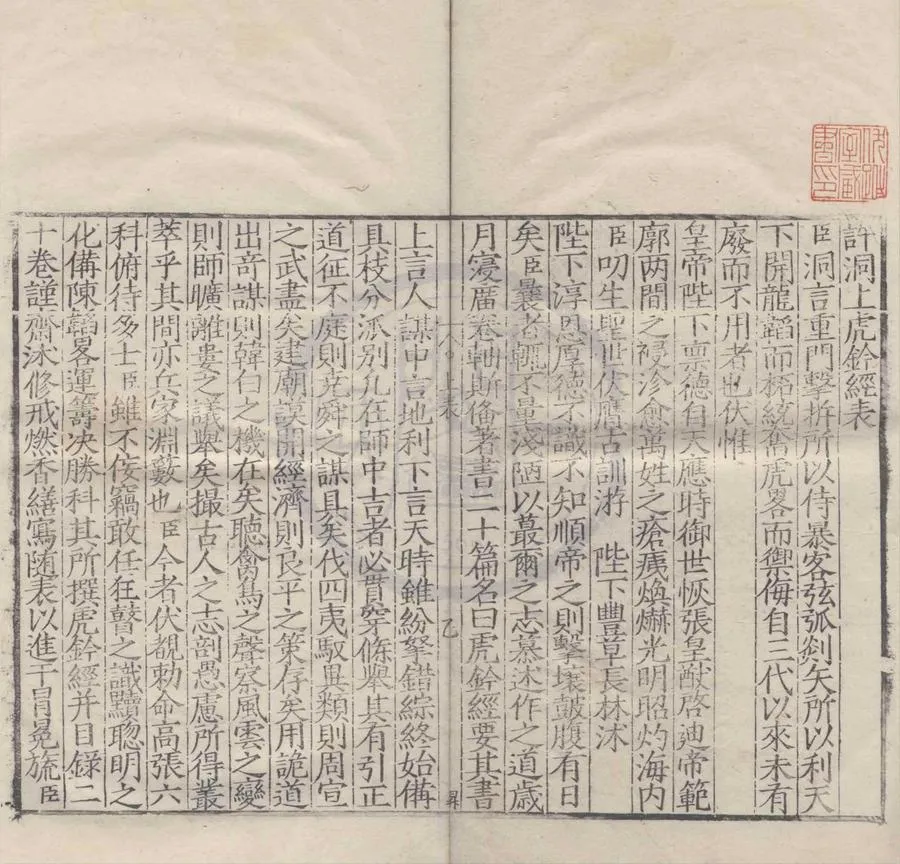 許洞上虎鈐經表
臣洞言重門擊柝所以待暴客弦弧剡矢所以利天
下開龍韜而柘統奮虎畧而禦侮自三代以來未有
廢而不用者也伏惟
皇帝陛下禀德自天應時御世恢張皇猷啓迪帝範
廓两間之祲沴愈萬姓之瘡痍煥爀光明昭灼海内
臣叨生聖世伏膺古訓游 陛下豐草長林沭
陛下淳恩厚德不識不知順帝之則擊壤鼓腹有日
矣臣曩者輒不量淺陋以蕞爾之志慕述作之道歳
月寖廣卷軸斯俻著書二十篇名曰虎鈐經要其書
六〇上表 乙 昇
上言人謀中言地利下言天時雖紛拏錯綜終始備
具枝分派别凡在師中古者必貫穿條舉其有引正
道征不庭則堯舜之謀具矣伐四夷馭異類則周宣
之武盡矣建廟謨開經濟則良平之策存矣用詭道
出奇謀則韓白之機在矣聽禽鳥之聲察風雲之變
則師曠離婁之議舉矣撮古人之志剖愚慮所得叢
萃乎其間亦兵家淵藪也臣今者伏覩勅命高張六
科俯待多士臣雖不佞竊敢任狂瞽之識黷聦明之
化備陳韜畧運籌决勝科其所撰虎鈐經并目録二
十卷謹齋沐修戒燃香繕寫随表以進干冒冕旒臣